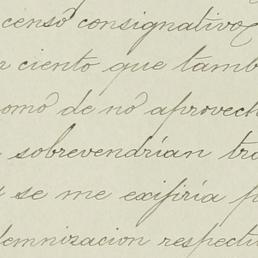 censo consignativo
ciento que tamb
omo de no aprovech
sobrevendrían tra
se me exifiría p
demnizacion respectiv